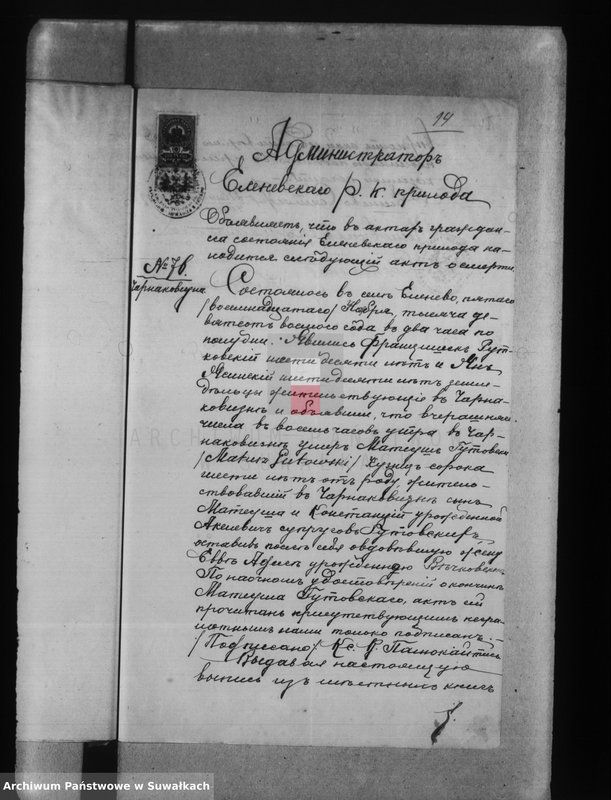 14
Администраторъ
Еленевскаго р. к. прихода
Объявляетъ, что въ актахъ граждан-
ска состоянія Еленевскаго прихода на-
ходится слѣдующій актъ о смерти
№ 76.
Чарнаковизна
Состоялось въ селѣ Еленево, пятаго
/восемнадцатаго/ Ноября, тысяча де-
вятьсотъ восьмого года въ два часа по
полудни. Явились Францишекъ Рут-
ковскій шестидесяти лѣтъ и Янъ
Ясинскій шестидесяти лѣтъ земле-
дѣльцы жительствующіе въ Чарна-
ковизнѣ и объявили, что вчерашняго
числа въ восемь часовъ утра въ Чар-
наковизнѣ умеръ Матеушъ Гутовскій
/Mateusz Gutowski/ сорока
шести лѣтъ отъ роду жительст-
ствовавшій въ Чарнаковизнѣ сынъ
Матеуша и Констанціи урожденной
супруговъ Гутовскихъ,
оставивъ послѣ себя овдовѣвшую жену
Еву урожденную
По наочномъ удостовѣреніи о кончинѣ
Матеуша Гутовскаго, актъ сей
прочитанъ присутствующимъ негра-
мотнымъ нами только подписанъ:
/Подписано/ Кс. К.
Выдавая настоящую
выпись изъ мѣстныхъ книгъ
Archiwum Państwowe w Suwałkach